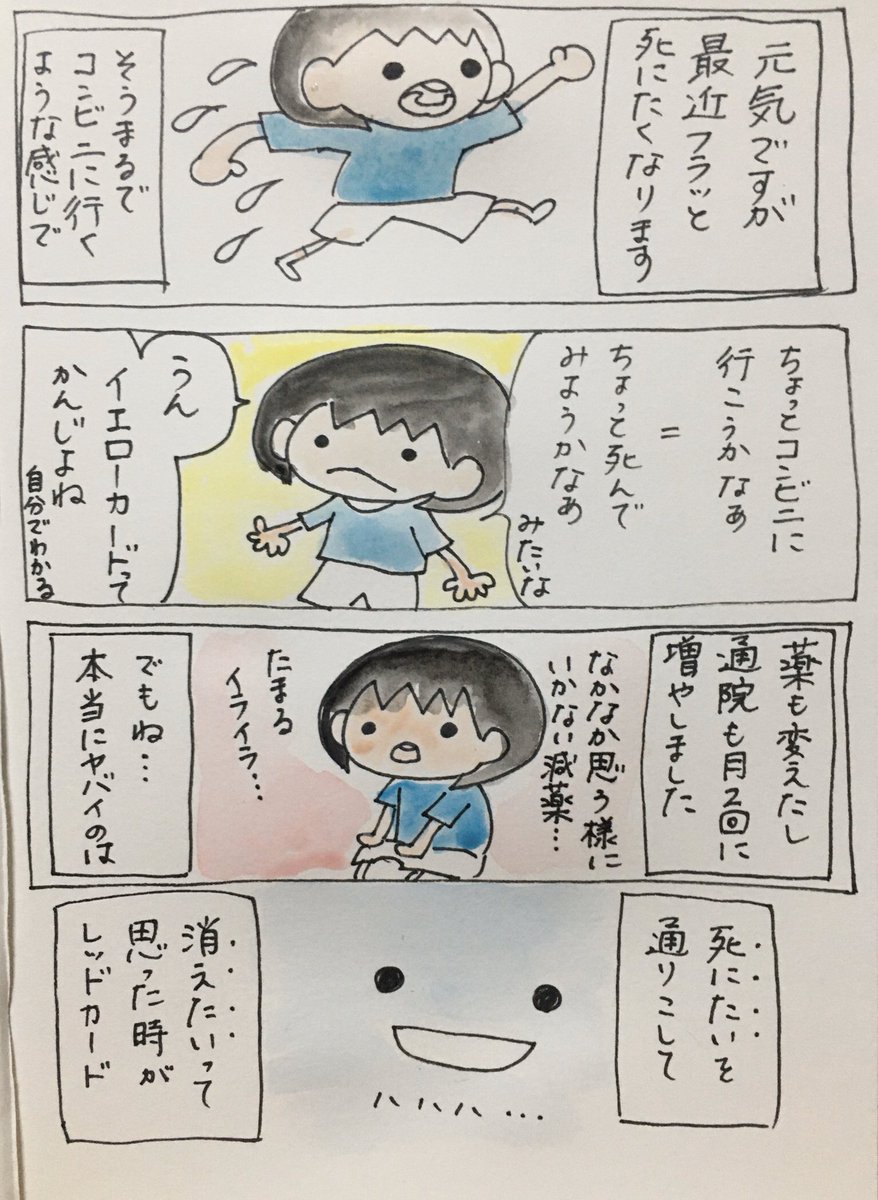 元気ですが
最近フラッと
死にたくなります
そうまるで
コンビニに行く
ような感じで
ちょっとコンビニに
行こうかなぁ
=
ちょっと死んで
みようかなぁ
みたいな
うん
イエローカードって
かんじよね
自分でわかる
薬も変えたし
通院も月2回に
増やしました
なかなか思う様に
いかない減薬…
たまる
イライラ…
でもね…
本当にヤバイのは
死にたいを
通りこして
ハハハハ…
消えたいって
思った時が
レッドカード